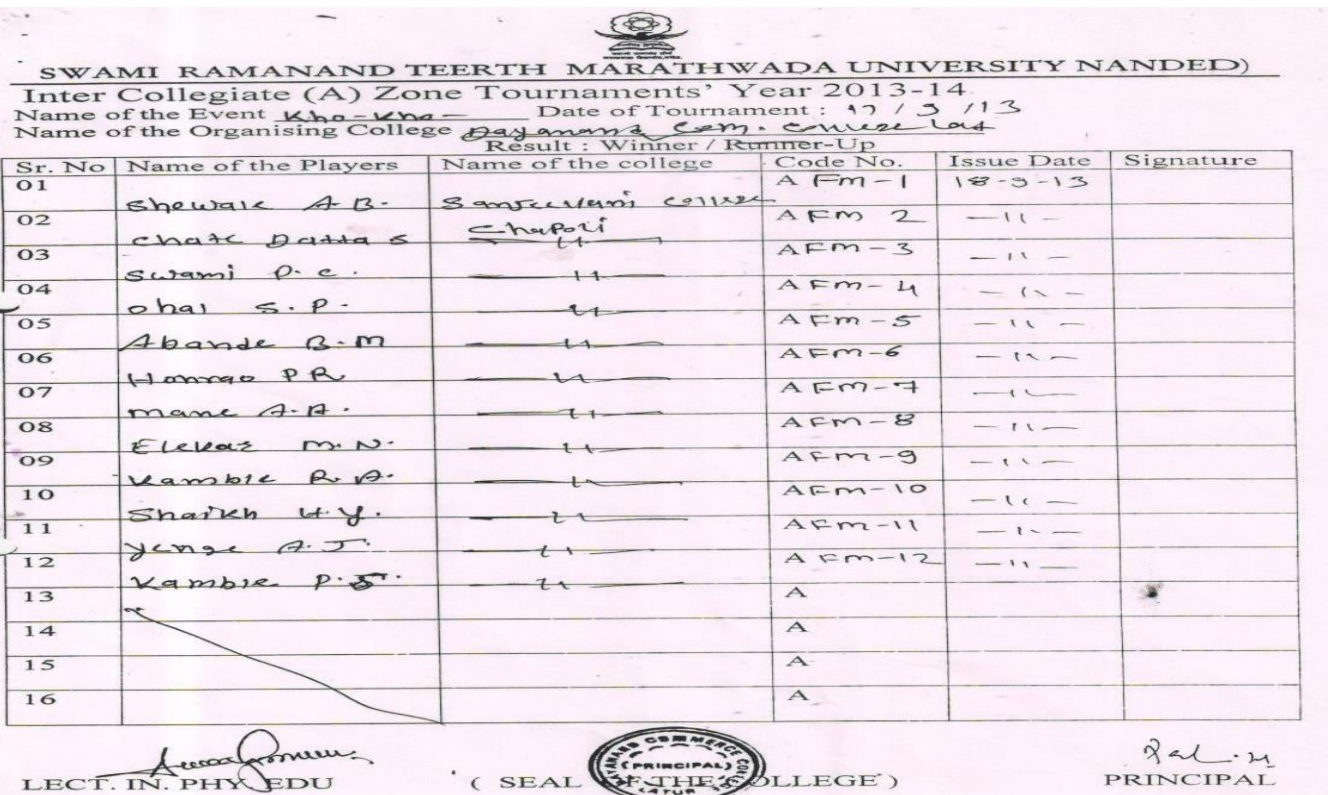 SWAMI RAMANAND TEERTH MARATHWADA UNIVERSITY NANDED)
Inter Collegiate (A) Zone Tournaments' Year 2013-14
Name of the Event Kho-Kho- Date of Tournament : 17 / 9 / 13
Name of the Organising College Dayanand Com. College Lat
Result : Winner / Runner-Up
Sr. No Name of the Players Name of the college Code No. Issue Date Signature
01 Shewale A.B. Sanjeevani College Chapoli A FM-1 18-9-13
02 Chate Datta S —11— A FM 2 —11—
03 Swami P.C. —11— A FM-3 —11—
04 Ohal S.P. —11— A FM-4 —11—
05 Abande B.M —11— A FM-5 —11—
06 Honrao P R —11— A FM-6 —11—
07 Mane A.A. —11— A FM-7 —11—
08 Elekar M.N. —11— A FM-8 —11—
09 Kamble R.A. —11— A FM-9 —11—
10 Shaikh H.Y. —11— A FM-10 —11—
11 Yenge A.J. —11— A FM-11 —11—
12 Kamble P.S. —11— A FM-12 —11—
13 A
14 A
15 A
16 A
LECT. IN. PHY EDU ( SEAL OF THE COLLEGE ) PRINCIPAL
DAYANAND COMMERCE COLLEGE
(PRINCIPAL)
LATUR